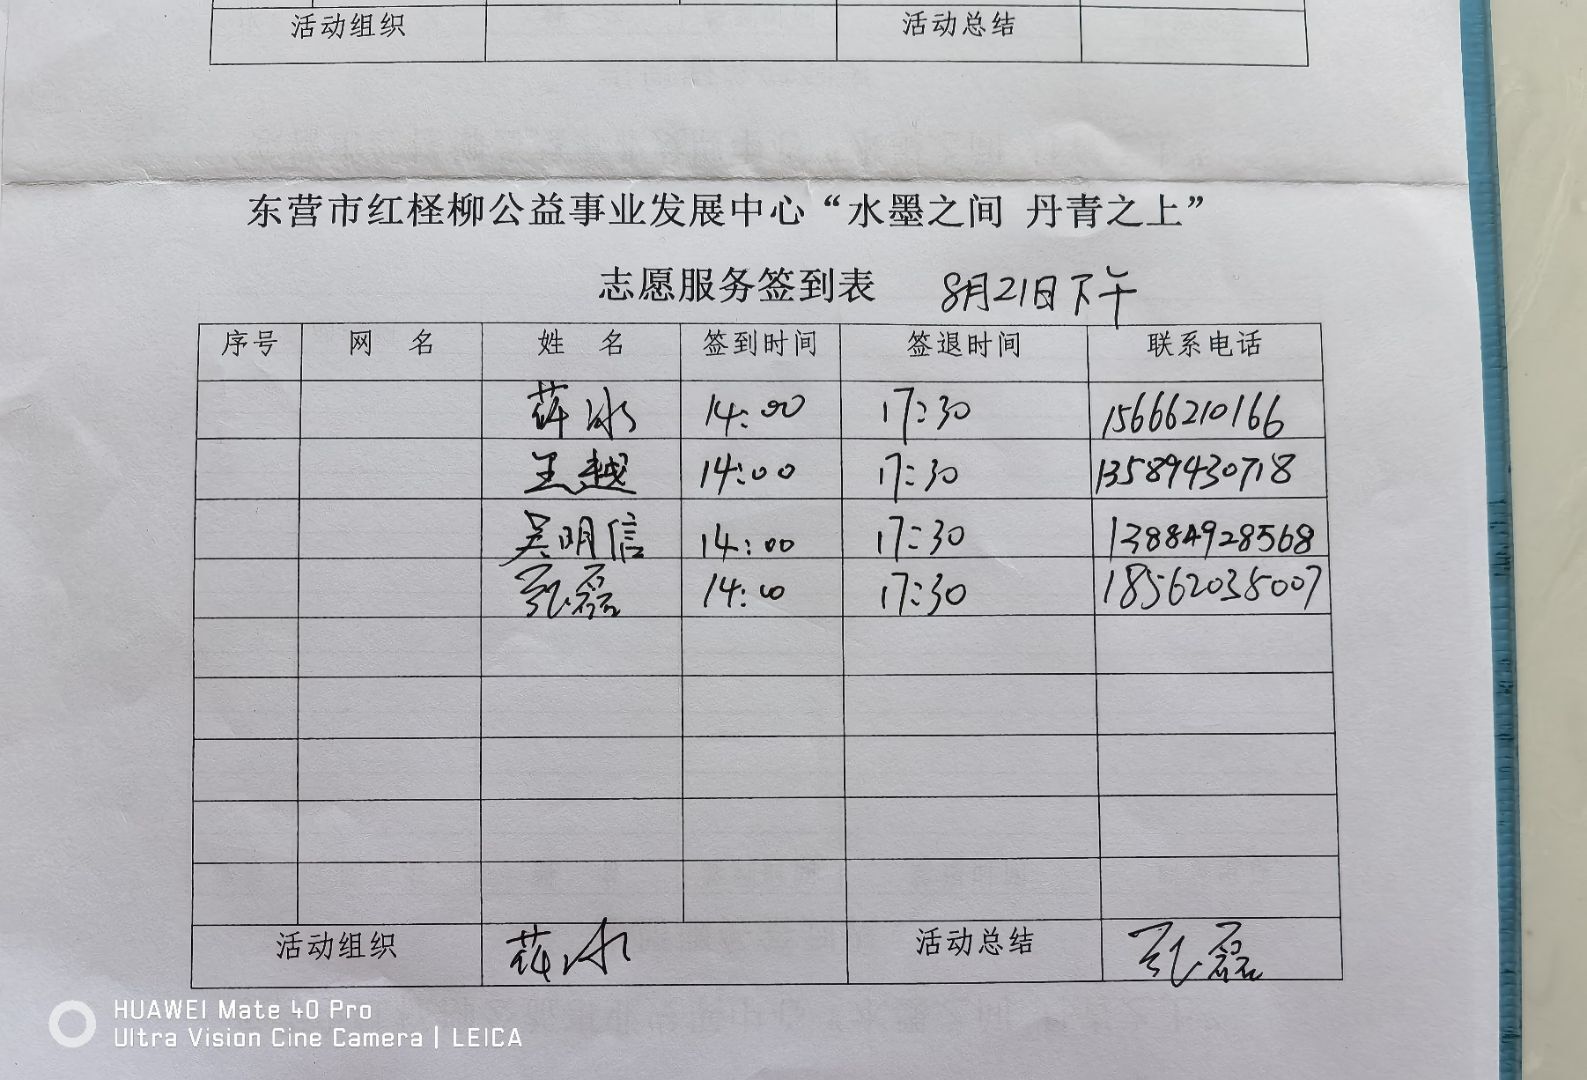 活动组织 活动总结
东营市红柽柳公益事业发展中心“水墨之间 丹青之上”
志愿服务签到表 8月21日下午
序号 网 名 姓 名 签到时间 签退时间 联系电话
薛冰 14:00 17:30 15666210166
王越 14:00 17:30 13589430718
吴明信 14:00 17:30 13884928568
张磊 14:00 17:30 18562035007
活动组织 薛冰 活动总结 张磊
HUAWEI Mate 40 Pro
Ultra Vision Cine Camera | LEICA